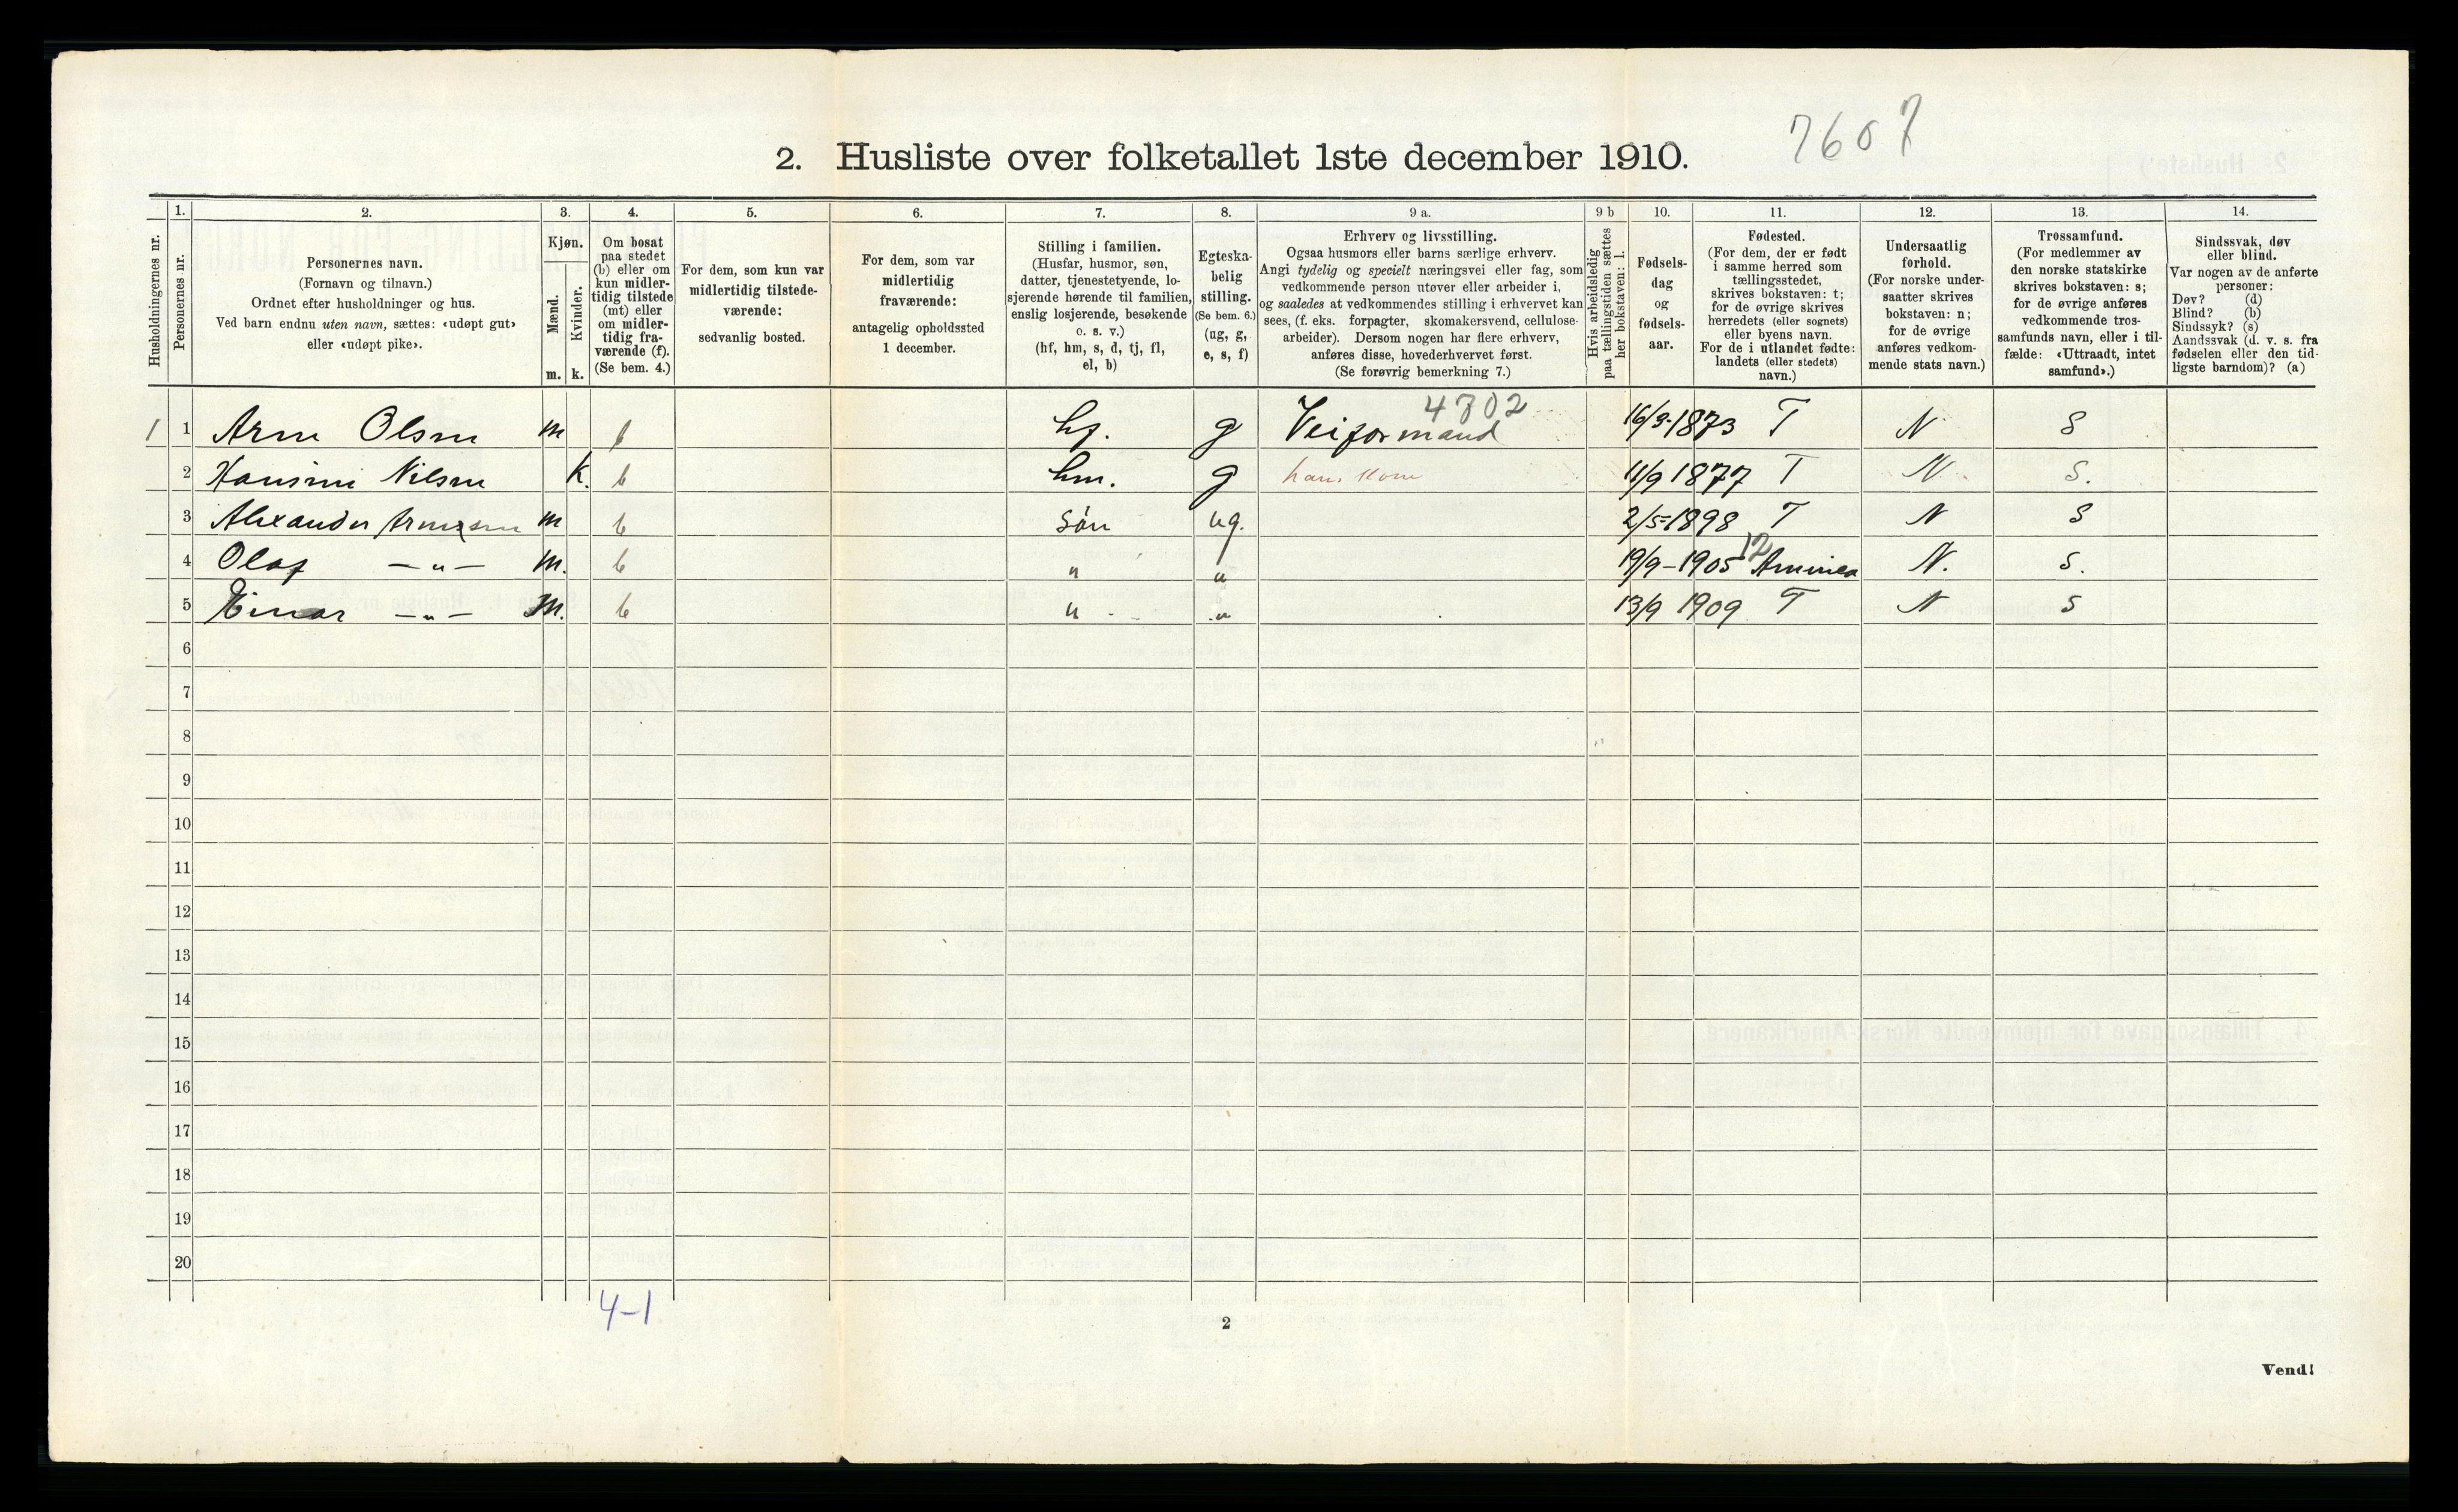 7607
2. Husliste over folketallet 1ste december 1910.
1. 2. 3. 4. 5. 6. 7. 8. 9 a. 9 b 10. 11. 12. 13. 14.
Husholdningernes nr.
Personernes nr.
Personernes navn.
(Fornavn og tilnavn.)
Ordnet efter husholdninger og hus.
Ved barn endnu uten navn, sættes: «udøpt gut»
eller «udøpt pike».
Kjøn.
Mænd.
Kvinder.
m. k.
Om bosat
paa stedet
(b) eller om
kun midler-
tidig tilstede
(mt) eller
om midler-
tidig fra-
værende (f).
(Se bem. 4.)
For dem, som kun var
midlertidig tilstede-
værende:
sedvanlig bosted.
For dem, som var
midlertidig
fraværende:
antagelig opholdssted
1 december.
Stilling i familien.
(Husfar, husmor, søn,
datter, tjenestetyende, lo-
sjerende hørende til familien,
enslig losjerende, besøkende
o. s. v.)
(hf, hm, s, d, tj, fl,
el, b)
Egteska-
belig
stilling.
(Se bem. 6.)
(ug, g,
e, s, f)
Erhverv og livsstilling.
Ogsaa husmors eller barns særlige erhverv.
Angi tydelig og specielt næringsvei eller fag, som
vedkommende person utøver eller arbeider i,
og saaledes at vedkommendes stilling i erhvervet kan
sees, (f. eks. forpagter, skomakersvend, cellulose-
arbeider). Dersom nogen har flere erhverv,
anføres disse, hovederhvervet først.
(Se forøvrig bemerkning 7.)
Hvis arbeidsledig
paa tællingstiden sættes
her bokstaven: l.
Fødsels-
dag
og
fødsels-
aar.
Fødested.
(For dem, der er født
i samme herred som
tællingsstedet,
skrives bokstaven: t;
for de øvrige skrives
herredets (eller sognets)
eller byens navn.
For de i utlandet fødte:
landets (eller stedets)
navn.)
Undersaatlig
forhold.
(For norske under-
saatter skrives
bokstaven: n;
for de øvrige
anføres vedkom-
mende stats navn.)
Trossamfund.
(For medlemmer av
den norske statskirke
skrives bokstaven: s;
for de øvrige anføres
vedkommende tros-
samfunds navn, eller i til-
fælde: «Uttraadt, intet
samfund».)
Sindssvak, døv
eller blind.
Var nogen av de anførte
personer:
Døv? (d)
Blind? (b)
Sindssyk? (s)
Aandssvak (d. v. s. fra
fødselen eller den tid-
ligste barndom)? (a)
4702
1 1 Arne Olsen m hf. g Veiformand 1873 T N S
2 Nilsen k. b hm. g 11/9 1877 T N S.
3 Alexander Arnesen m b søn ug. 2/5-1898 T N S
12
4 Olaf —"— m. b " " 19/9-1905 N. S.
5 Einar —"— M. b " " 13/9 1909 T N S
6
7
8
9
10
11
12
13
14
15
16
17
18
19
20
4-1
2
Vend!